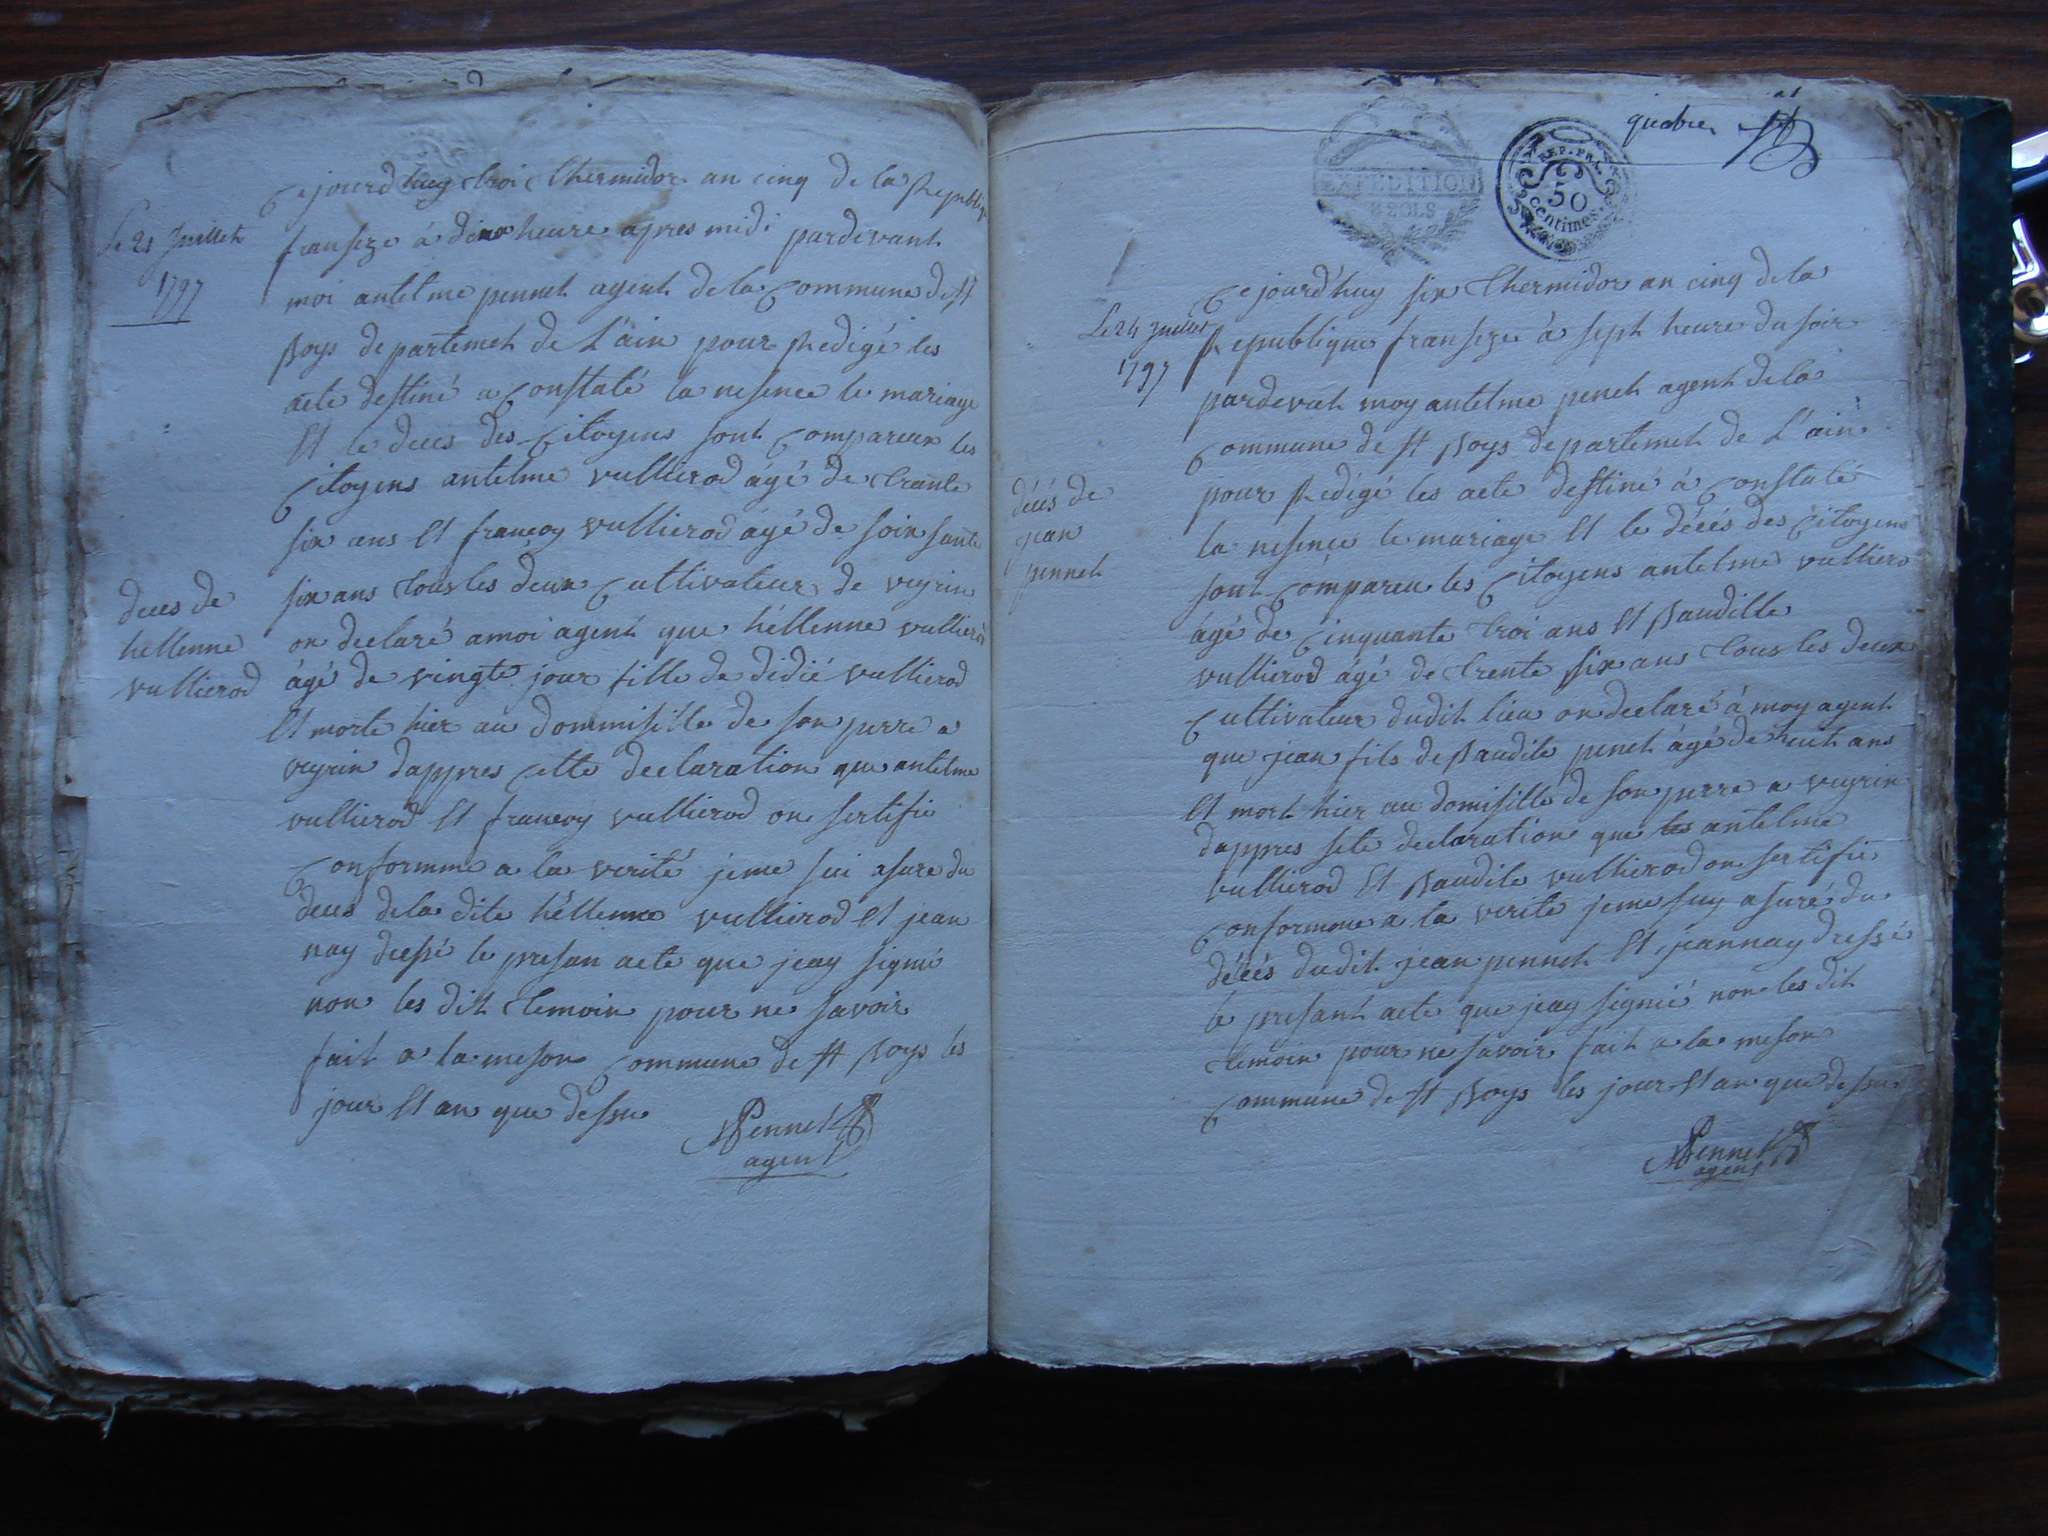 Le 21 Juillet
1797
Cejourdhuy troi thermidor an cinq de la Republiq
franseze à deux heure apres midi pardevant
moi antelme pennet agent de la Commune de st
Boys departemet de L'ain pour Redigé les
acte destiné a Constaté la nesence le mariage
Et le deces des Citoyens sont Compareux les
Citoyens antelme vullierod âgé de trante
six ans Et françoy vullierod âgé de soixsante
six ans tous les deux Cultivateur de veyrin
on declaré a moi agent que héllenne vullierod
âgé de vingte jour fille de didié vullierod
Et morte hier au dommisille de son perre a
veyrin dappres Cette declaration que antelme
vullierod Et françoy vullierod on sertifie
Conformme a la verité je me sui asure du
deces de la dite héllenne vullierod Et jean
nay dressé le presan acte que jeay signé
non les dit temoin pour ne savoir
fait a la meson Commune de st Boys les
jour Et an que dessu
Pennet
agent
deces de
hellenne
vullierod
EXPEDITION
8 SOLS
REP. FRA.
50
centimes
Le 24 Juillet
1797
décés de
jean
pennet
Cejourd'huy six thermidor an cinq de la
Republique franseze à sept heure du soir
pardevat moy antelme penet agent de la
Commune de st Boys departemet de L'ain
pour Redigé les acte destiné à Constaté
la nesence le mariage Et le décés des Citoyens
sont Compareu les Citoyens antelme vulliero
âgé de Cinquante troi ans Et Baudille
vullierod âgé de trente six ans tous les deux
Cultivateur dudit lieu on declaré à moy agent
que jean fils de Baudile penet âgé de huit ans
Et mort hier au domisille de son perre a veyrin
dappres sete declaration que antelme
vullierod Et Baudile vullierod on sertifie
Conformme a la verite je me suy asuré du
décés dudit jean pennet Et jeannay dressé
le presant acte que jeay signié non les dit
temoin pour ne savoir fait a la meson
Commune de st Boys les jour Et an que dessu
Pennet
agent